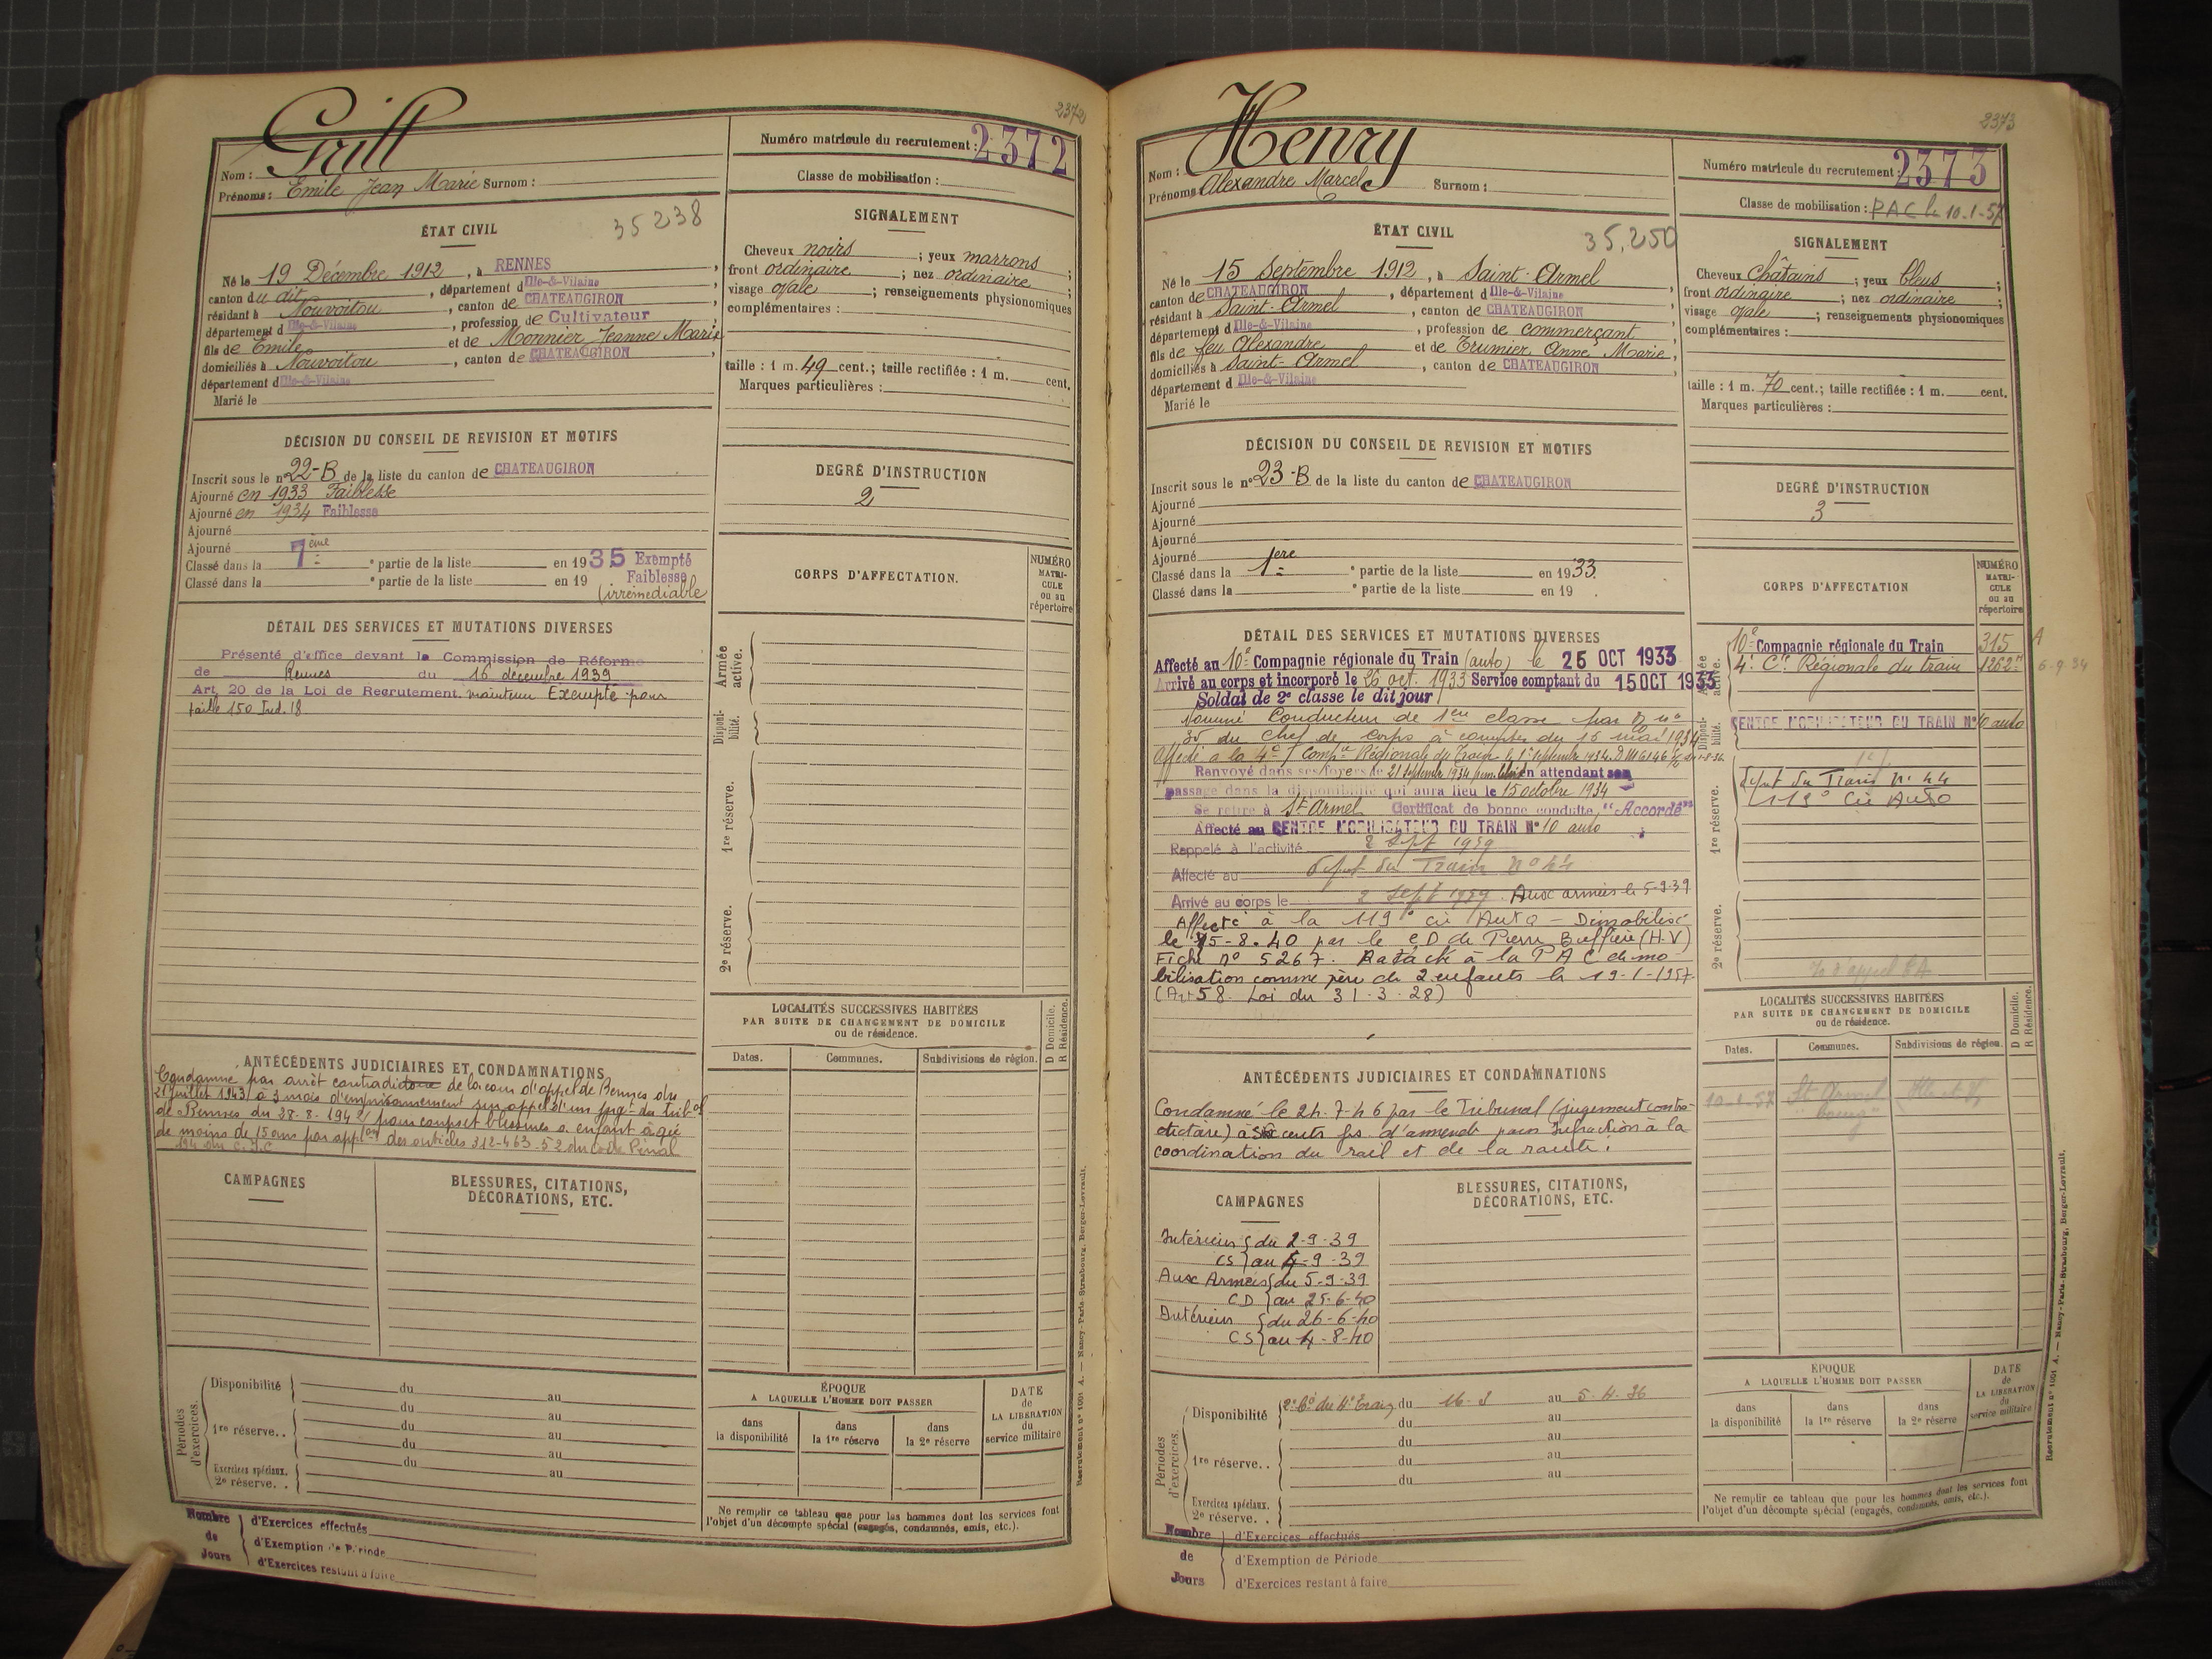 2372
Grill
Nom :
Prénoms : Emile Jean Marie Surnom :
Numéro matricule du recrutement : 2372
Classe de mobilisation :
ÉTAT CIVIL
35238
Né le 19 Décembre 1912, à RENNES,
canton du dit, département d Ille-&-Vilaine
résidant à Nouvoitou, canton de CHATEAUGIRON,
département d Ille-&-Vilaine, profession de Cultivateur
fils de Emile et de Monnier, Jeanne Marie
domiciliés à Nouvoitou, canton de CHATEAUGIRON,
département d Ille-&-Vilaine
Marié le
SIGNALEMENT
Cheveux noirs ; yeux marrons ;
front ordinaire ; nez ordinaire ;
visage ovale ; renseignements physionomiques
complémentaires :
taille : 1 m. 49 cent.; taille rectifiée : 1 m. cent.
Marques particulières :
DÉCISION DU CONSEIL DE REVISION ET MOTIFS
Inscrit sous le n° 22-B de la liste du canton de CHATEAUGIRON
Ajourné en 1933 Faiblesse
Ajourné en 1934 Faiblesse
Ajourné
Ajourné
Classé dans la 7ème partie de la liste en 1935 Exempté
Classé dans la partie de la liste en 19 Faiblesse
(irrémédiable
DEGRÉ D'INSTRUCTION
2
DÉTAIL DES SERVICES ET MUTATIONS DIVERSES
Présenté d'office devant la Commission de Réforme
de Rennes du 16 décembre 1939
Art. 20 de la Loi de Recrutement. maintenu Exempté pour
taille 150 Ind. 18
CORPS D'AFFECTATION.
NUMÉRO
MATRI-
CULE
ou au
répertoire
Armée
active.
Disponi-
bilité.
1re réserve.
2e réserve.
LOCALITÉS SUCCESSIVES HABITÉES
PAR SUITE DE CHANGEMENT DE DOMICILE
ou de résidence.
Dates.
Communes.
Subdivisions de région.
D Domicile.
R Résidence.
ANTÉCÉDENTS JUDICIAIRES ET CONDAMNATIONS
Condamné par arrêt contradictoire de la cour d'appel de Rennes du
21 juillet 1943 à 3 mois d'emprisonnement sur appel d'un jugt du tribal
de Rennes du 28-8-1942 pour coups et blessures à enfant âgé
de moins de 15 ans par appion des articles 312-463-52 du code Pénal
194 du C.I.C
CAMPAGNES
BLESSURES, CITATIONS,
DÉCORATIONS, ETC.
Périodes
d'exercices.
Disponibilité du au
du au
1re réserve.. du au
du au
du au
Exercices spéciaux.
2e réserve. .
ÉPOQUE
A LAQUELLE L'HOMME DOIT PASSER
dans
la disponibilité
dans
la 1re réserve
dans
la 2e réserve
DATE
de
LA LIBÉRATION
du
service militaire
Ne remplir ce tableau que pour les hommes dont les services font
l'objet d'un décompte spécial (engagés, condamnés, omis, etc.).
Nombre
de
Jours
d'Exercices effectués
d'Exemption de Période
d'Exercices restant à faire
Recrutement n° 1001 A. — Nancy-Paris-Strasbourg, Berger-Levrault.
2373
Henry
Nom :
Prénoms Alexandre Marcel Surnom :
Numéro matricule du recrutement : 2373
Classe de mobilisation : P A C le 10-1-57
ÉTAT CIVIL
35.250
Né le 15 Septembre 1912, à Saint-Armel
canton de CHATEAUGIRON, département d Ille-&-Vilaine
résidant à Saint-Armel, canton de CHATEAUGIRON,
département d Ille-&-Vilaine, profession de commerçant,
fils de feu Alexandre et de Trumier, Anne Marie,
domiciliés à Saint-Armel, canton de CHATEAUGIRON
département d Ille-&-Vilaine
Marié le
SIGNALEMENT
Cheveux Châtains ; yeux bleus ;
front ordinaire ; nez ordinaire ;
visage ovale ; renseignements physionomiques
complémentaires :
taille : 1 m. 70 cent.; taille rectifiée : 1 m. cent.
Marques particulières :
DÉCISION DU CONSEIL DE REVISION ET MOTIFS
Inscrit sous le n° 23-B de la liste du canton de CHATEAUGIRON
Ajourné
Ajourné
Ajourné
Ajourné
Classé dans la 1ère partie de la liste en 1933.
Classé dans la partie de la liste en 19 .
DEGRÉ D'INSTRUCTION
3
DÉTAIL DES SERVICES ET MUTATIONS DIVERSES
Affecté au 10e Compagnie régionale du Train (auto) le 25 OCT 1933
Arrivé au corps et incorporé le 26 oct. 1933 Service comptant du 15 OCT 1933
Soldat de 2e classe le dit jour
Nommé Conducteur de 1ère classe par D no
35 du Chef de Corps à compter du 16 mai 1934
Affecté à la 4e Compie Régionale du Train le 1er septembre 1934. D M 6146
Renvoyé dans ses foyers le 21 septembre 1934 en attendant son
passage dans la disponibilité qui aura lieu le 15 octobre 1934
Se retire à St Armel Certificat de bonne conduite "Accordé"
Affecté au CENTRE MOBILISATEUR DU TRAIN N° 10 auto
Rappelé à l'activité 2 Sept 1939
Affecté au dépôt du Train n° 44
Arrivé au corps le 2 Sept 1939. Aux armées le 5-9-39
Affecté à la 119e cie Auto - Démobilisé
le 15-8-40 par le CD de Pierre Buffière (H-V)
Fiche n° 5267. Rataché à la P A C de mo
bilisation comme père de 2 enfants le 19-1-1957
(Art 58. Loi du 31.3.28)
CORPS D'AFFECTATION
NUMÉRO
MATRI-
CULE
ou au
répertoire
Armée
active.
10e Compagnie régionale du Train 315 A
4e Cie Régionale du train 1262 6-9-34
Disponi-
bilité.
CENTRE MOBILISATEUR DU TRAIN N° 10 auto
1re réserve.
dépôt du Train n° 44
119e Cie Auto
2e réserve.
LOCALITÉS SUCCESSIVES HABITÉES
PAR SUITE DE CHANGEMENT DE DOMICILE
ou de résidence.
Dates.
Communes.
Subdivisions de région.
D Domicile.
R Résidence.
10-1-57 St Armel Ille et V
"bourg"
ANTÉCÉDENTS JUDICIAIRES ET CONDAMNATIONS
Condamné le 24-7-46 par le Tribunal (jugement contra-
dictoire) à six cents frs d'amende pour Infraction à la
coordination du rail et de la route.
CAMPAGNES
BLESSURES, CITATIONS,
DÉCORATIONS, ETC.
Intérieur du 2-9-39
CS au 4-9-39
Aux Armées du 5-9-39
CD au 25-6-40
Intérieur du 26-6-40
CS au 4-8-40
Périodes
d'exercices.
Disponibilité 2e Cie du 4e Train du 16-3 au 5-4-36
du au
1re réserve.. du au
du au
du au
Exercices spéciaux.
2e réserve. .
ÉPOQUE
A LAQUELLE L'HOMME DOIT PASSER
dans
la disponibilité
dans
la 1re réserve
dans
la 2e réserve
DATE
de
LA LIBÉRATION
du
service militaire
Ne remplir ce tableau que pour les hommes dont les services font
l'objet d'un décompte spécial (engagés, condamnés, omis, etc.).
Nombre
de
Jours
d'Exercices effectués
d'Exemption de Période
d'Exercices restant à faire
Recrutement n° 1001 A. — Nancy-Paris-Strasbourg, Berger-Levrault.